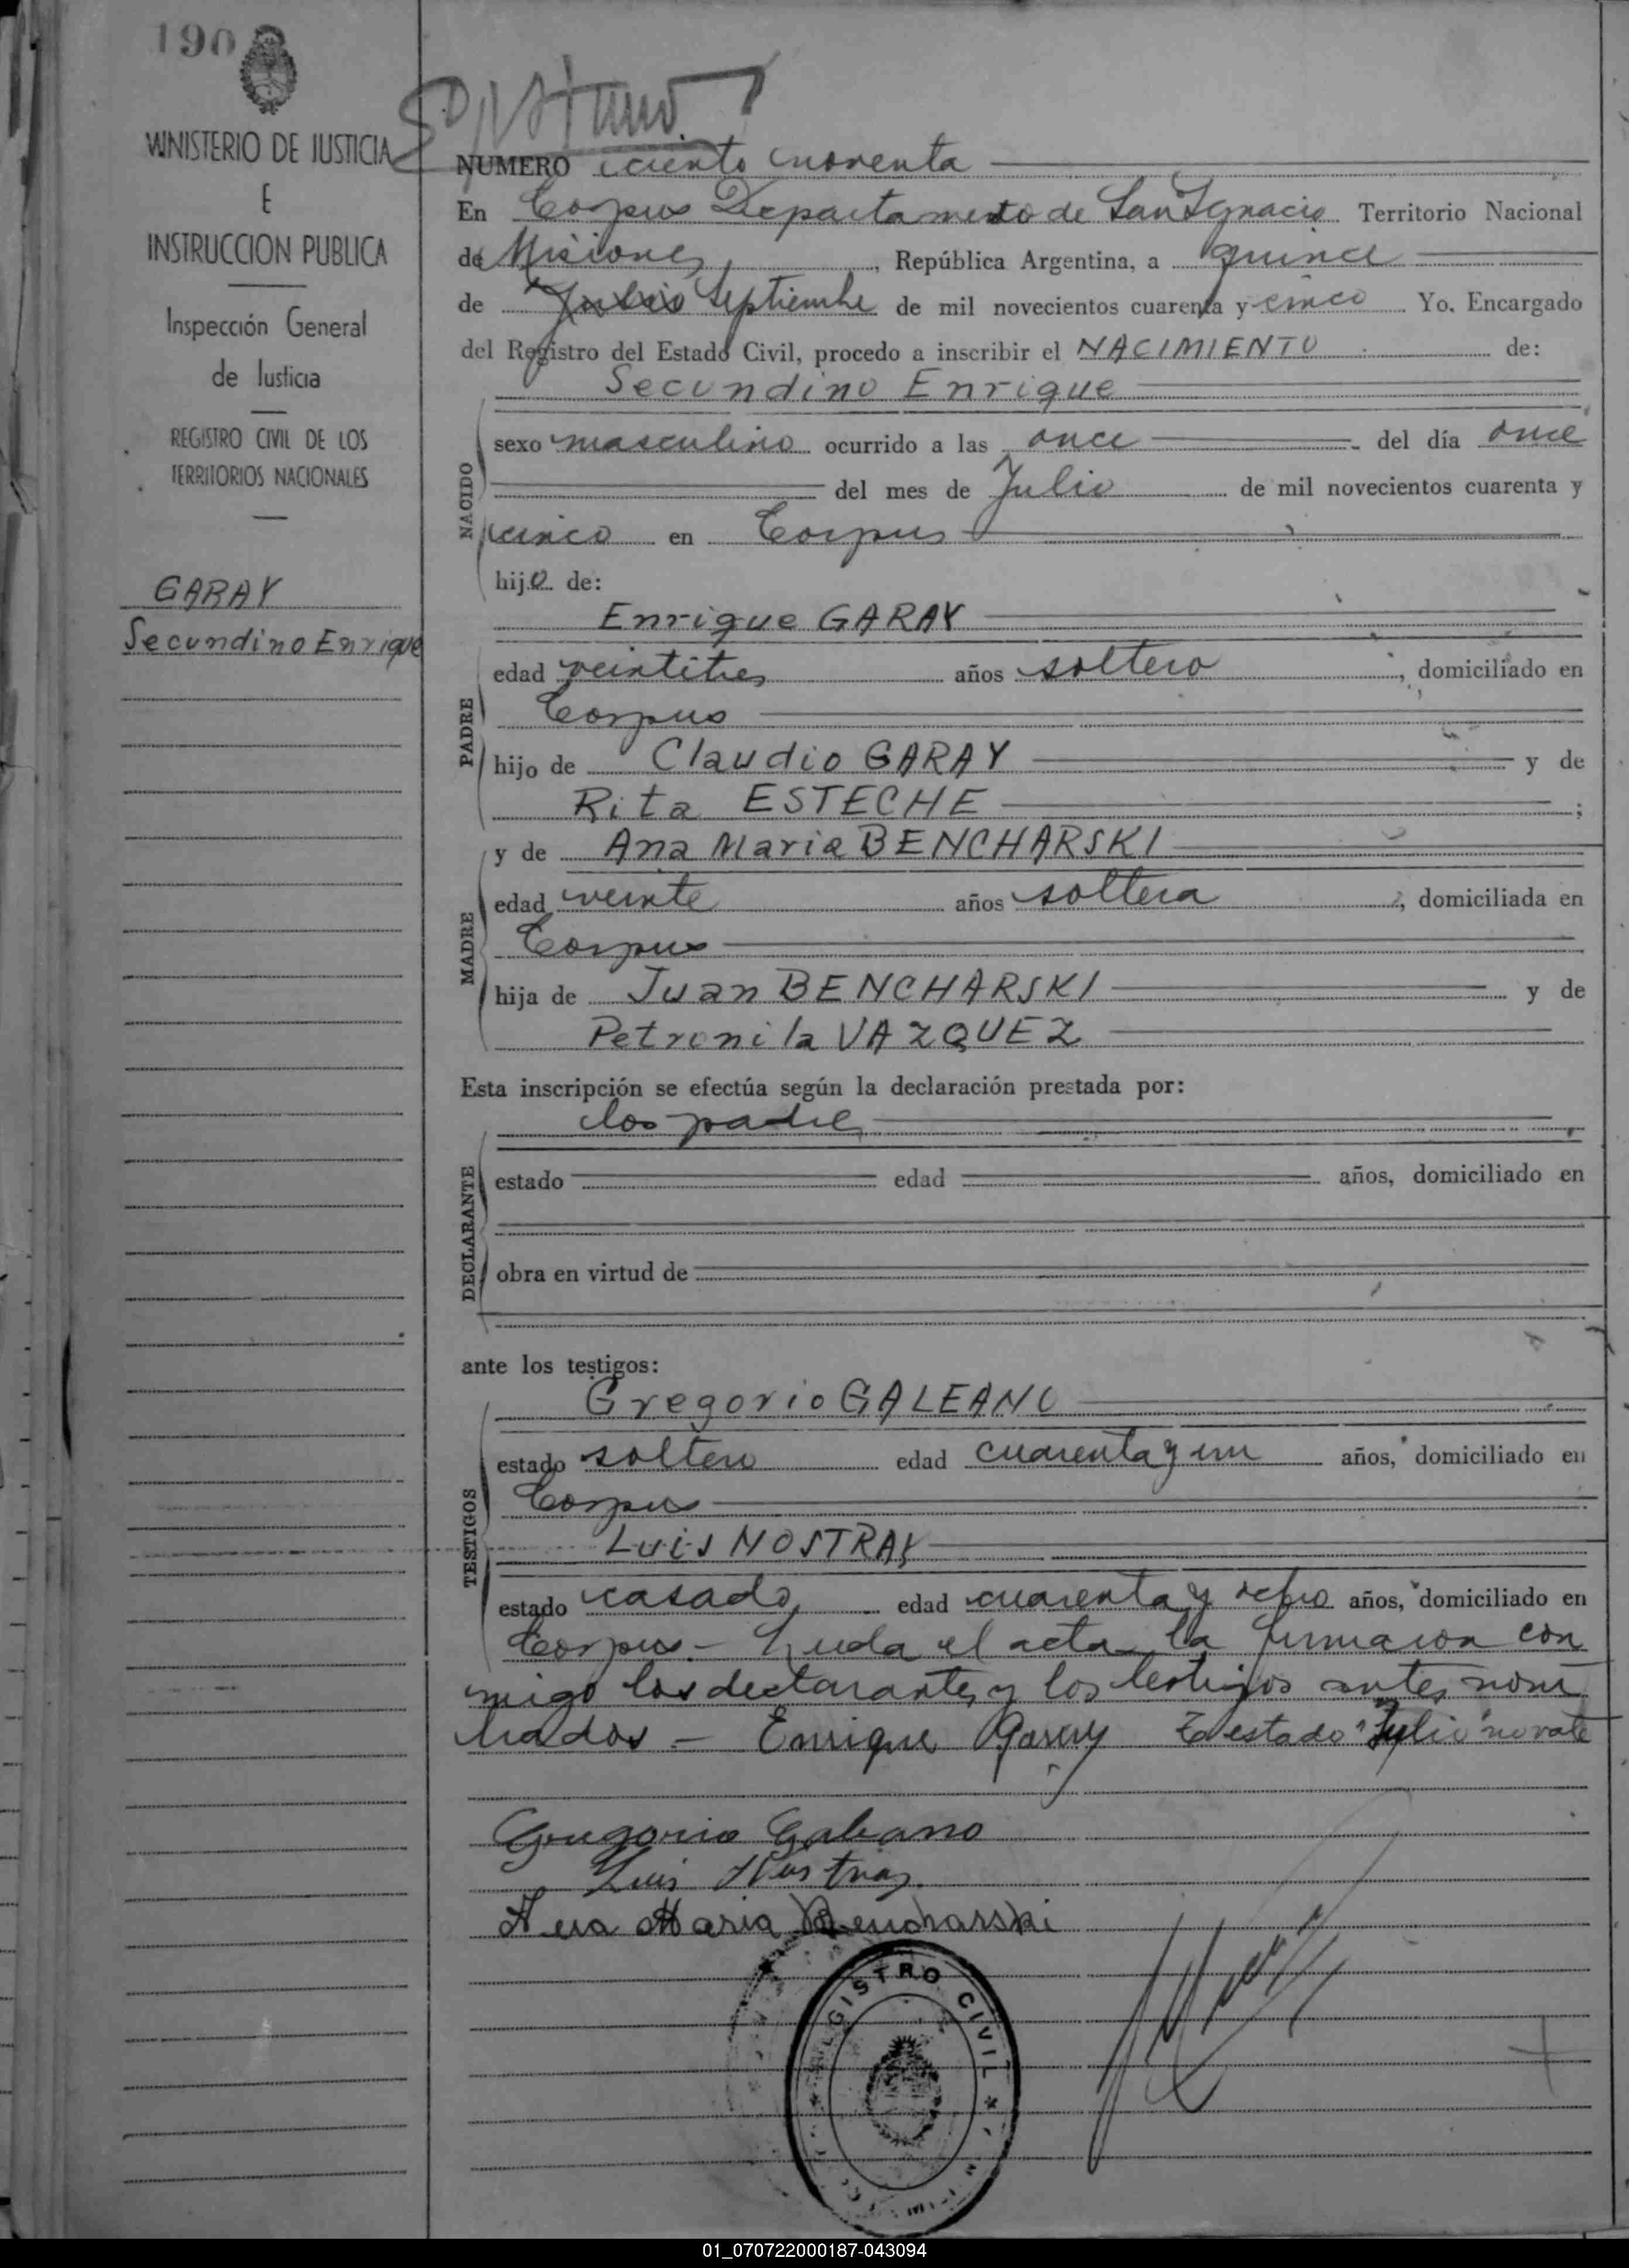 190
MINISTERIO DE JUSTICIA
E
INSTRUCCION PUBLICA
Inspección General
de Justicia
REGISTRO CIVIL DE LOS
TERRITORIOS NACIONALES
GARAY
Secundino Enrique
NUMERO ciento noventa
En Corpus Departamento de San Ignacio Territorio Nacional
de Misiones, República Argentina, a quince
de Julio Septiembre de mil novecientos cuarenta y cinco Yo, Encargado
del Registro del Estado Civil, procedo a inscribir el NACIMIENTO de:
Secundino Enrique
NACIDO
sexo masculino ocurrido a las once del día once
del mes de Julio de mil novecientos cuarenta y
cinco en Corpus
hijo de:
Enrique GARAY
PADRE
edad veintitres años soltero, domiciliado en
Corpus
hijo de Claudio GARAY y de
Rita ESTECHE;
MADRE
y de Ana Maria BENCHARSKI
edad veinte años soltera, domiciliada en
Corpus
hija de Juan BENCHARSKI y de
Petronila VAZQUEZ
Esta inscripción se efectúa según la declaración prestada por:
los padres
DECLARANTE
estado edad años, domiciliado en
obra en virtud de
ante los testigos:
Gregorio GALEANO
TESTIGOS
estado soltero edad cuarenta y un años, domiciliado en
Corpus
Luis NOSTRAY
estado casado, edad cuarenta y ocho años, domiciliado en
Corpus.- Leida el acta la firmaron con
migo los declarantes y los testigos antes nom
brados - Enrique Garay Testado "Julio" no vale
Gregorio Galeano
Luis Nostray
Ana Maria Bencharski
REGISTRO CIVIL
01_070722000187-043094